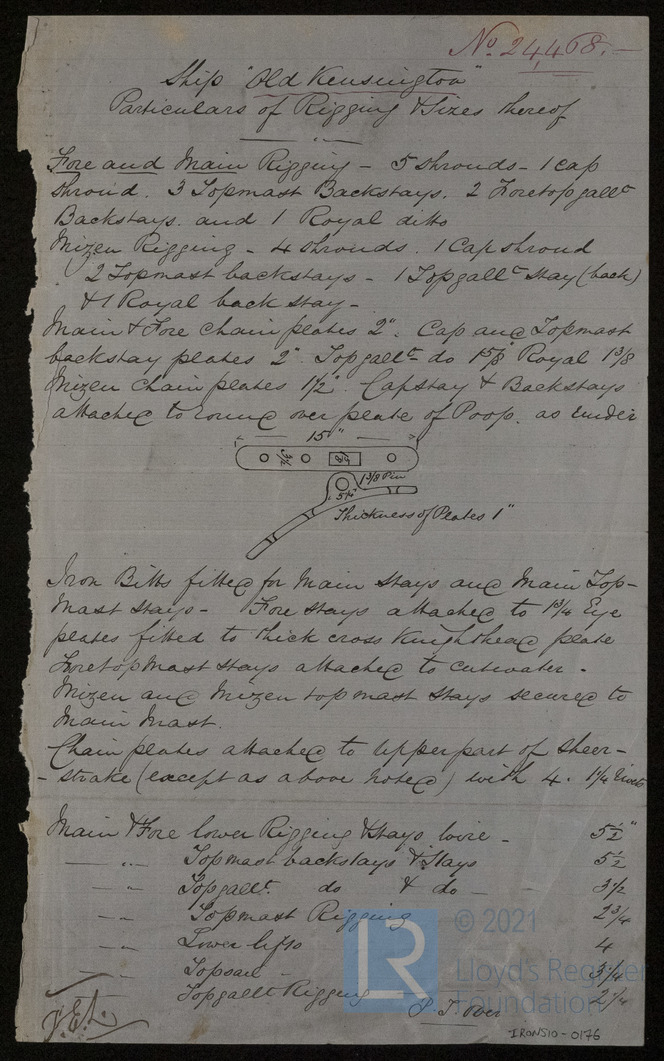 No 24,468.
Ship "Old Kensington"
Particulars of Rigging & Sizes thereof
Fore and Main Rigging - 5 shrouds - 1 cap
shroud. 3 Topmast Backstays. 2 Foretopgallt
Backstays. and 1 Royal ditto
Mizen Rigging - 4 shrouds. 1 Cap shroud
2 Topmast backstays - 1 Topgallt Stay (back)
& 1 Royal back stay -
Main & Fore chain plates 2". Cap and Topmast
backstay plates 2". Topgallt do 1 5/8" Royal 1 3/8
Mizen Chain plates 1 1/2". Capstay & Backstays
attached to round over plate of Poop. as under
15"
3 1/2
1 3/8 Pin
5 1/4"
Thickness of Plates 1"
Iron Bitts fitted for Main stays and Main Top-
mast stays - Fore stays attached to 1 3/4 Eye
plates fitted to thick cross Knighthead plate
Foretopmast stays attached to cutwater.
Mizen and Mizen topmast stays secured to
Main Mast.
Chain plates attached to Upper part of Sheer-
-strake (except as above noted) with 4. 1 1/4 Rivets
Main & Fore lower Rigging & Stays wire - 5 1/2"
— " — Topmast backstays & Stays 5 1/2
— " — Topgallt. do & do - 3 1/2
— " — Topmast Rigging 2 3/4
— " — Lower lifts 4
— " — Topsail - 3 1/4
— " — Topgallt Rigging 2 1/4
P. T. Over
© 2021
LR
Lloyd's Register
Foundation
IRONS10-0176